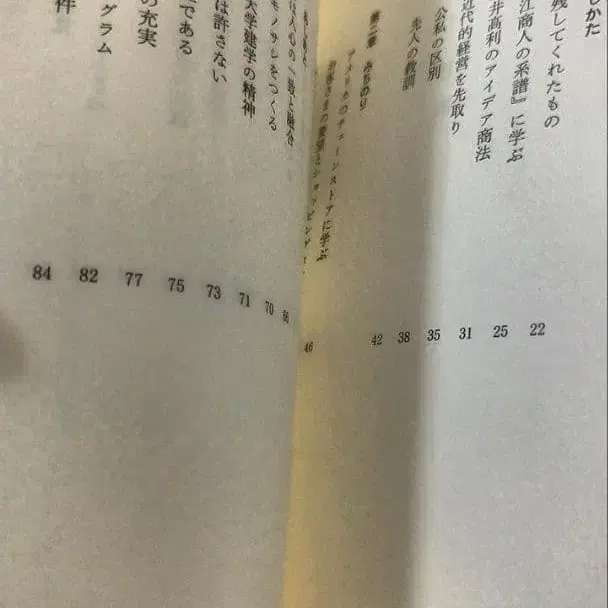 しかた
残してくれたもの 22
江商人の系譜』に学ぶ 25
井高利のアイデア商法 31
近代的経営を先取り 35
公私の区別 38
先人の教訓 42
第二章 みちのり
アメリカのチェーンストアに学ぶ 46
の要望とショッピング
66
は人心の一致と融合 70
モノサシをつくる 71
大学建学の精神 73
は許さない 75
である 77
の充実 82
グラム 84
件